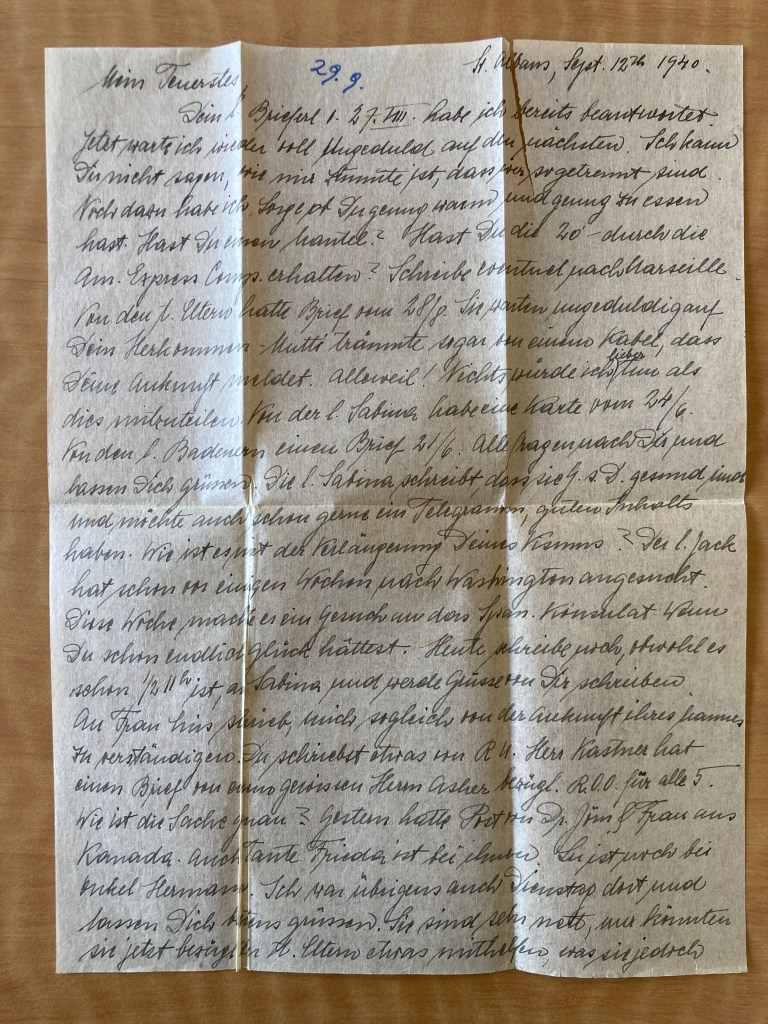 29.9.
St. Albans, Sept. 12th 1940.
Mein Teuerstes,
Dein l. Brieferl v. 27. VIII. habe ich bereits beantwortet.
Jetzt warte ich wieder voll Ungeduld auf den nächsten. Ich kann
Dir nicht sagen, wie mir zumute ist, dass wir so getrennt sind.
Noch dazu habe ich Sorge ob Du genug warm und genug zu essen
hast. Hast Du einen Mantel? Hast Du die 20'- durch die
Am. Express Comp. erhalten? Schreibe eventuel nach Marseille.
Von den l. Eltern hatte Brief vom 28/8. Sie warten ungeduldig auf
Dein Herkommen - Mutti träumte sogar von einem Kabel, dass
Deine Ankunft meldet. Alleweil! Nichts würde ich lieber tun als
dies mitzuteilen. Von der l. Sabina habe eine Karte vom 24/6.
Von den l. Badenern einen Brief 21/6. Alle fragen nach Dir und
lassen Dich grüssen. Die l. Sabina schreibt, dass sie G. s. D. gesund sind
und möchte auch schon gerne ein Telegramm, guten Inhalts
haben. Wie ist es mit der Verlängerung Deines Visums? Der l. Jack
hat schon vor einigen Wochen nach Washington angesucht.
Diese Woche machte er ein Gesuch an das Span. Konsulat. Wenn
Du schon endlich Glück hättest. Heute schreibe noch, obwohl es
schon 1/2 11h ist, an Sabina und werde Grüsse von Dir schreiben.
An Frau schrieb, mich sogleich von der Ankunft ihres Mannes
zu verständigen. Du schriebst etwas von R. U. Herr Kastner hat
einen Brief von einem gewissen Herrn Asher bezügl. R.O.O. für alle 5.
Wie ist die Sache genau? Gestern hatte Post von Dr. & Frau aus
Kanada. Auch Tante Frieda ist bei ihnen. Sie ist noch bei
Onkel Hermann. Ich war übrigens auch Dienstag dort und
lassen Dich bestens grüssen. Sie sind sehr nett, nur könnten
sie jetzt bezügl. der l. Eltern etwas mithelfen, was sie jedoch